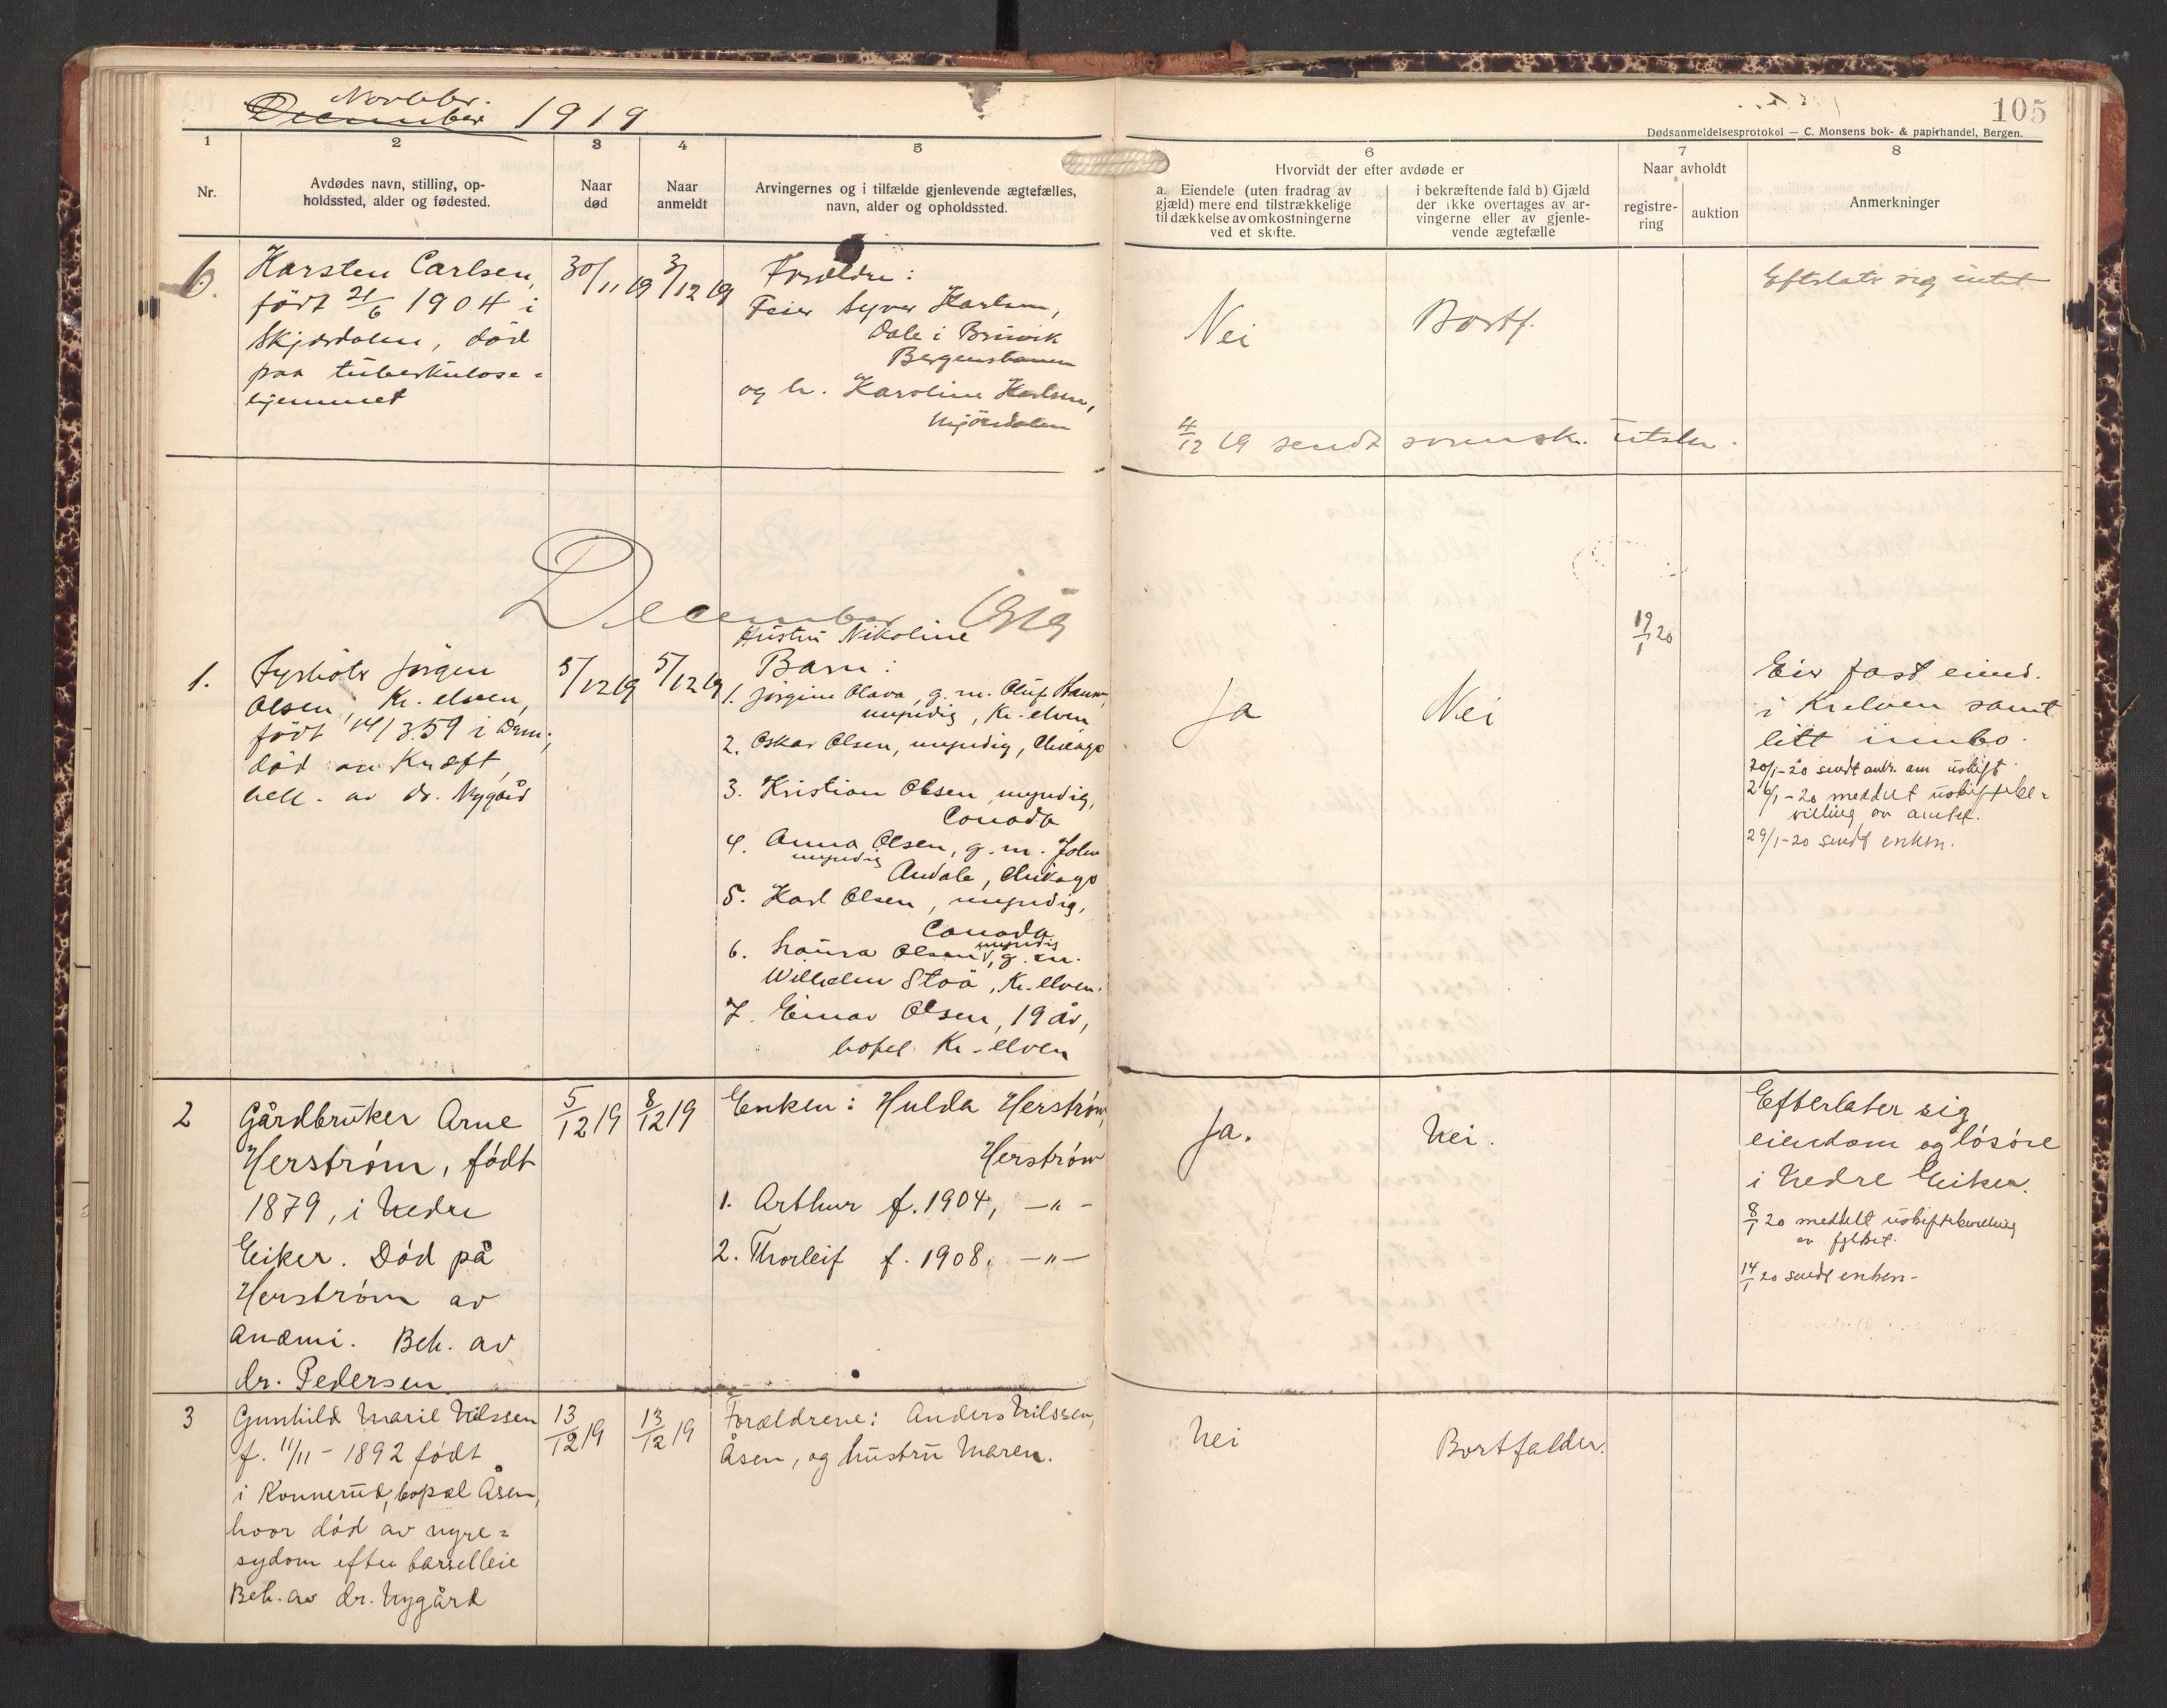 Novbbr.
December 1919
105
Dødsanmeldelsesprotokol — C. Monsens bok- & papirhandel, Bergen.
1
2
3
4
5
6
7
8
Nr.
Avdødes navn, stilling, op-
holdssted, alder og fødested.
Naar
død
Naar
anmeldt
Arvingernes og i tilfælde gjenlevende ægtefælles,
navn, alder og opholdssted.
Hvorvidt der efter avdøde er
a. Eiendele (uten fradrag av
gjæld) mere end tilstrækkelige
til dækkelse av omkostningerne
ved et skifte.
i bekræftende fald b) Gjæld
der ikke overtages av ar-
vingerne eller av gjenle-
vende ægtefælle
Naar avholdt
registre-
ring
auktion
Anmerkninger
6.
Karsten Carlsen,
født 21/6 1904 i
Skjærdalen, död
paa tuberkulose-
hjemmet
30/11 19
3/12 19
Forældre:
Feier Karlsen,
Dale i Bruvik
Bergensbanen
og h. Karoline Karlsen,
Mjöndalen
Nei
Bortf.
Efterlate sig intet
4/12 19 sendt utskr.
December 1919
1.
Fyrböter Jörgen
Olsen, Kr. elven,
født 14/3.59 i Drm.;
död av Kræft,
beh. av dr. Nygård
5/12 19
5/12 19
Hustru Nikoline
Barn:
1. Jörgine Olava, g. m. Oluf Hansen,
myndig, Kr. elven
2. Oskar Olsen, myndig, Chicago
3. Kristian Olsen myndig,
Canada
4. Anna Olsen, g. m. John
myndig
Andale, Chikago
5. Karl Olsen, myndig,
Canada
myndig
6. Laura Olsen, g. m.
Wilhelm Stoa, Kr. elven.
7. Einar Olsen, 19 år,
bopel Kr-elven
Ja
Nei
19/1 20
Eier fast eiend.
i Kr.elven samt
litt innbo.
20/1-20 sendt andr. om uskift.
26/1-20 meddelt uskiftebe-
villing av amtet.
29/1-20 sendt enken.
2
Gårdbruker Arne
Herström, födt
1879, i Nedre
Eiker. Död på
Herström av
Anæmi. Beh. av
dr. Pedersen
5/12 19
8/12 19
Enken: Hulda Herström,
Herström
1. Arthur f. 1904, —"-
2. Thorleif f. 1908. —"—
Ja.
Nei.
Efterlater sig
eiendom og lösöre
i Nedre Eiker.
8/1 20 meddelt uskiftebevilling
av fylket.
14/1 20 sendt enken-
3
Gunhild Marie Nilssen
f. 11/11 - 1892 födt
i Konnerud, bopæl Åsen,
hvor död av nyre=
sydom efter barselleie
Beh. av dr. Nygård
13/12 19
13/12 19
Forældrene: Anders Nilssen,
Åsen, og hustru Maren.
Nei
Bortfalder.